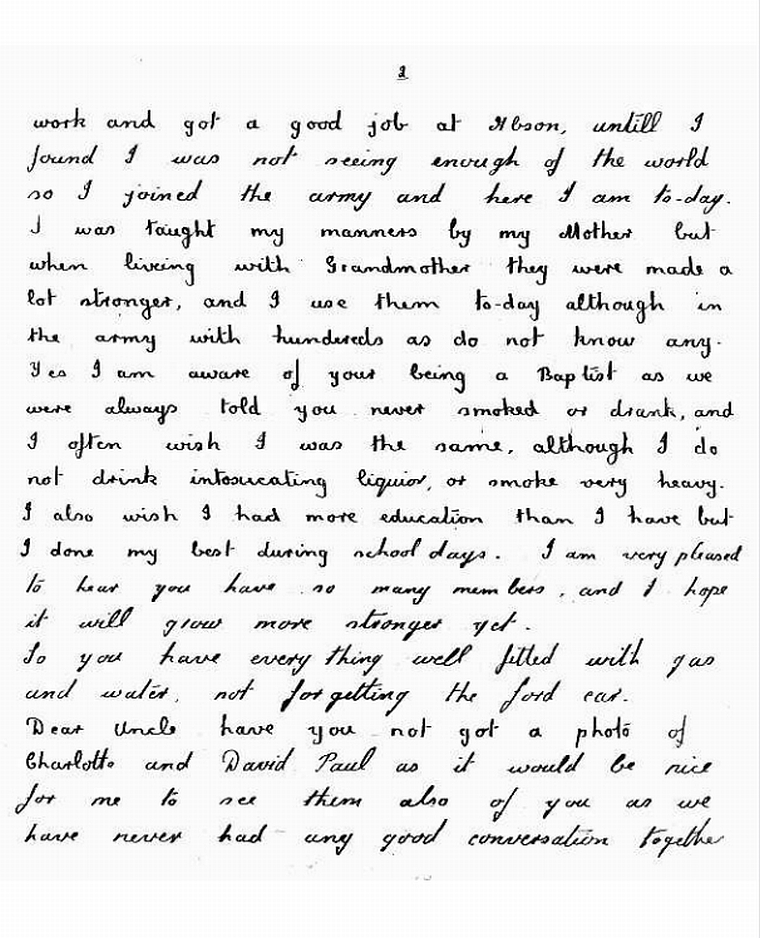 2
work and got a good job at Hbson, untill I
found I was not seeing enough of the world
so I joined the army and here I am to-day.
I was taught my manners by my Mother but
when liveing with Grandmother they were made a
lot stronger, and I use them to-day although in
the army with hundereds as do not know any.
Yes I am aware of your being a Baptist as we
were always told you never smoked or drank, and
I often wish I was the same, although I do
not drink intoxucating liquior, or smoke very heavy.
I also wish I had more education than I have but
I done my best during school days. I am very pleased
to hear you have so many members, and I hope
it will grow more stronger yet.
So you have every thing well fitted with gas
and water, not forgetting the ford car.
Dear Uncle have you not got a photo of
Charlotte and David Paul as it would be nice
for me to see them also of you as we
have never had any good conversation together